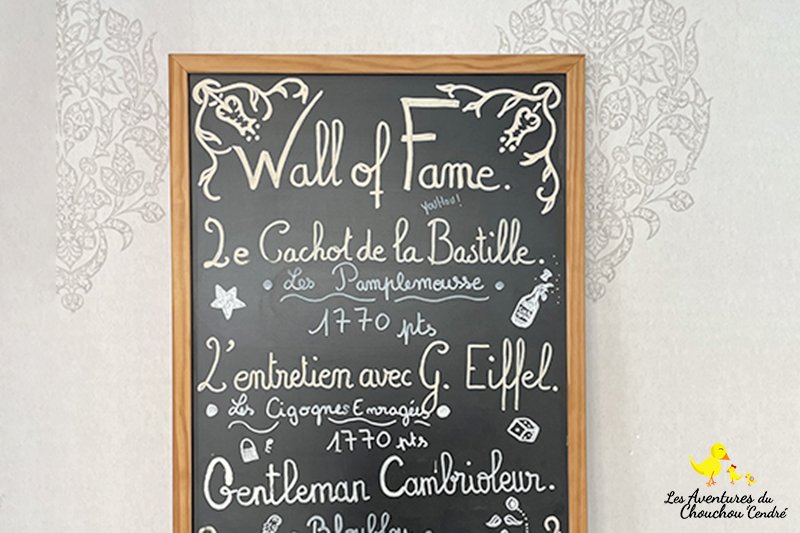 Wall of Fame.
Youhou!
Le Cachot de la Bastille.
Les Pamplemousse
1770 pts
L'entretien avec G. Eiffel.
Les Cigognes Enragées
1770 pts
Gentleman Cambrioleur.
Les Aventures du
Chouchou Cendré